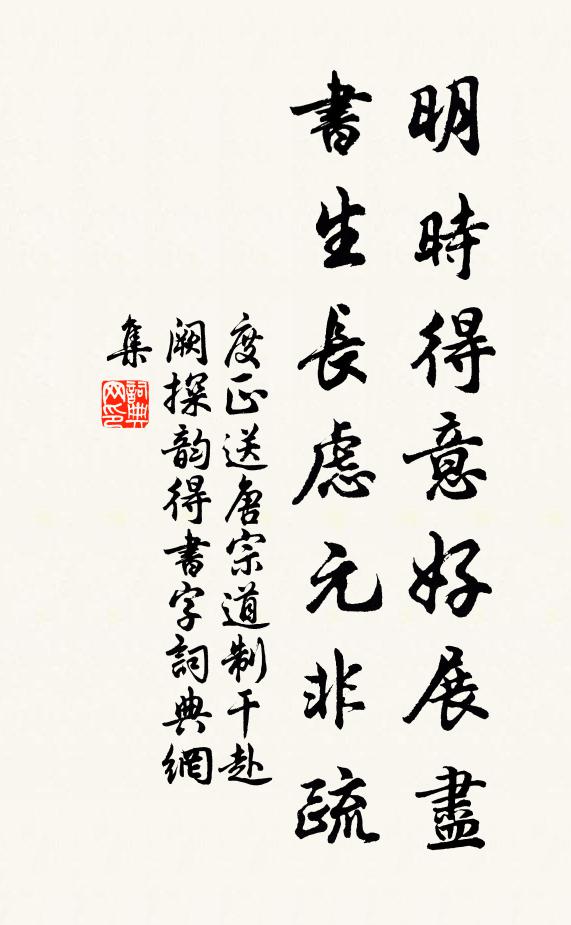 明時得意好展盡
書生長慮元非疏
度正送唐宗道制干赴
闕探韵得書字詞典網
集
詞典網印